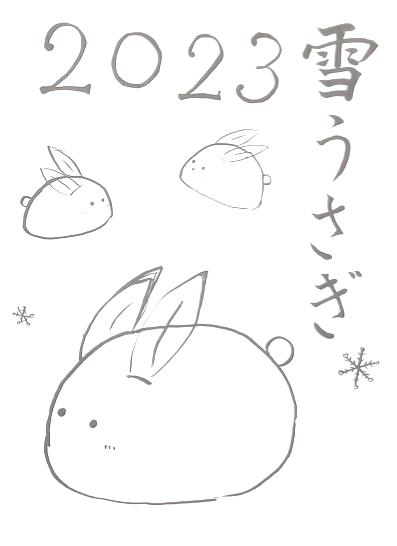 2023
雪うさぎ